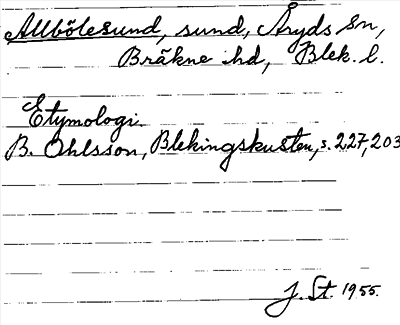 Allbölesund, sund, Åryds sn,
Bräkne hd, Blek. l.
Etymologi.
B. Ohlsson, Blekingskusten, s. 227, 203
J. St. 1955.